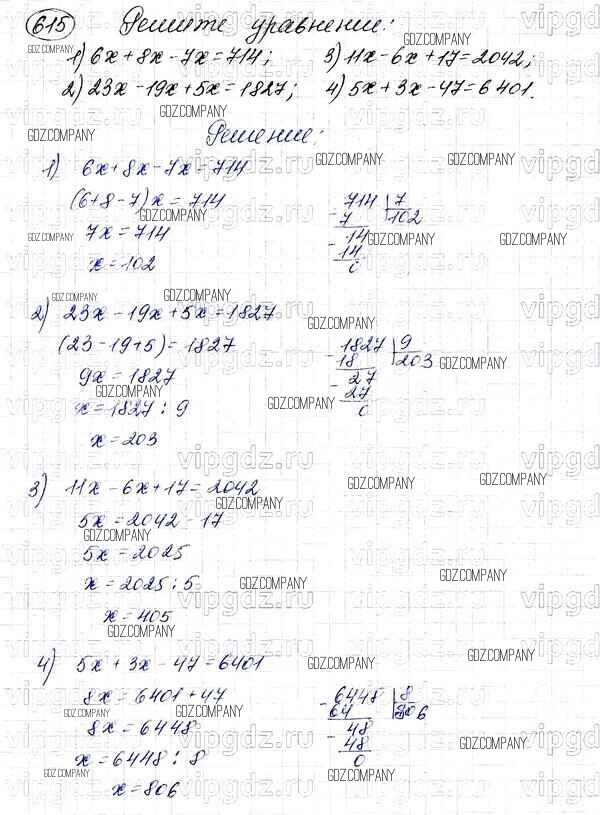 615 Решите уравнение:
1) 6x + 8x - 7x = 714; 3) 11x - 6x + 17 = 2042;
2) 23x - 19x + 5x = 1827; 4) 5x + 3x - 47 = 6401.
Решение:
1) 6x + 8x - 7x = 714
(6 + 8 - 7)x = 714
7x = 714
x = 102
714 | 7
- 7 102
14
- 14
0
2) 23x - 19x + 5x = 1827
(23 - 19 + 5) = 1827
9x = 1827
x = 1827 : 9
x = 203
- 1827 | 9
18 203
- 27
27
0
3) 11x - 6x + 17 = 2042
5x = 2042 - 17
5x = 2025
x = 2025 : 5
x = 405
4) 5x + 3x - 47 = 6401
8x = 6401 + 47
8x = 6448
x = 6448 : 8
x = 806
- 6448 | 8
64 806
- 48
48
0
GDZ.COMPANY
vipgdz.ru